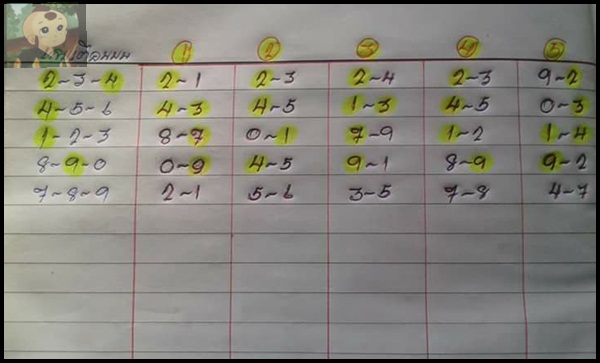 ① ② ③ ④ ⑤
2~3~4 2~1 2~3 2~4 2~3 9~2
4~5~6 4~3 4~5 1~3 4~5 0~3
1~2~3 8~7 0~1 7~9 1~2 1~4
8~9~0 0~9 4~5 9~1 8~9 9~2
7~8~9 2~1 5~6 3~5 7~8 4~7